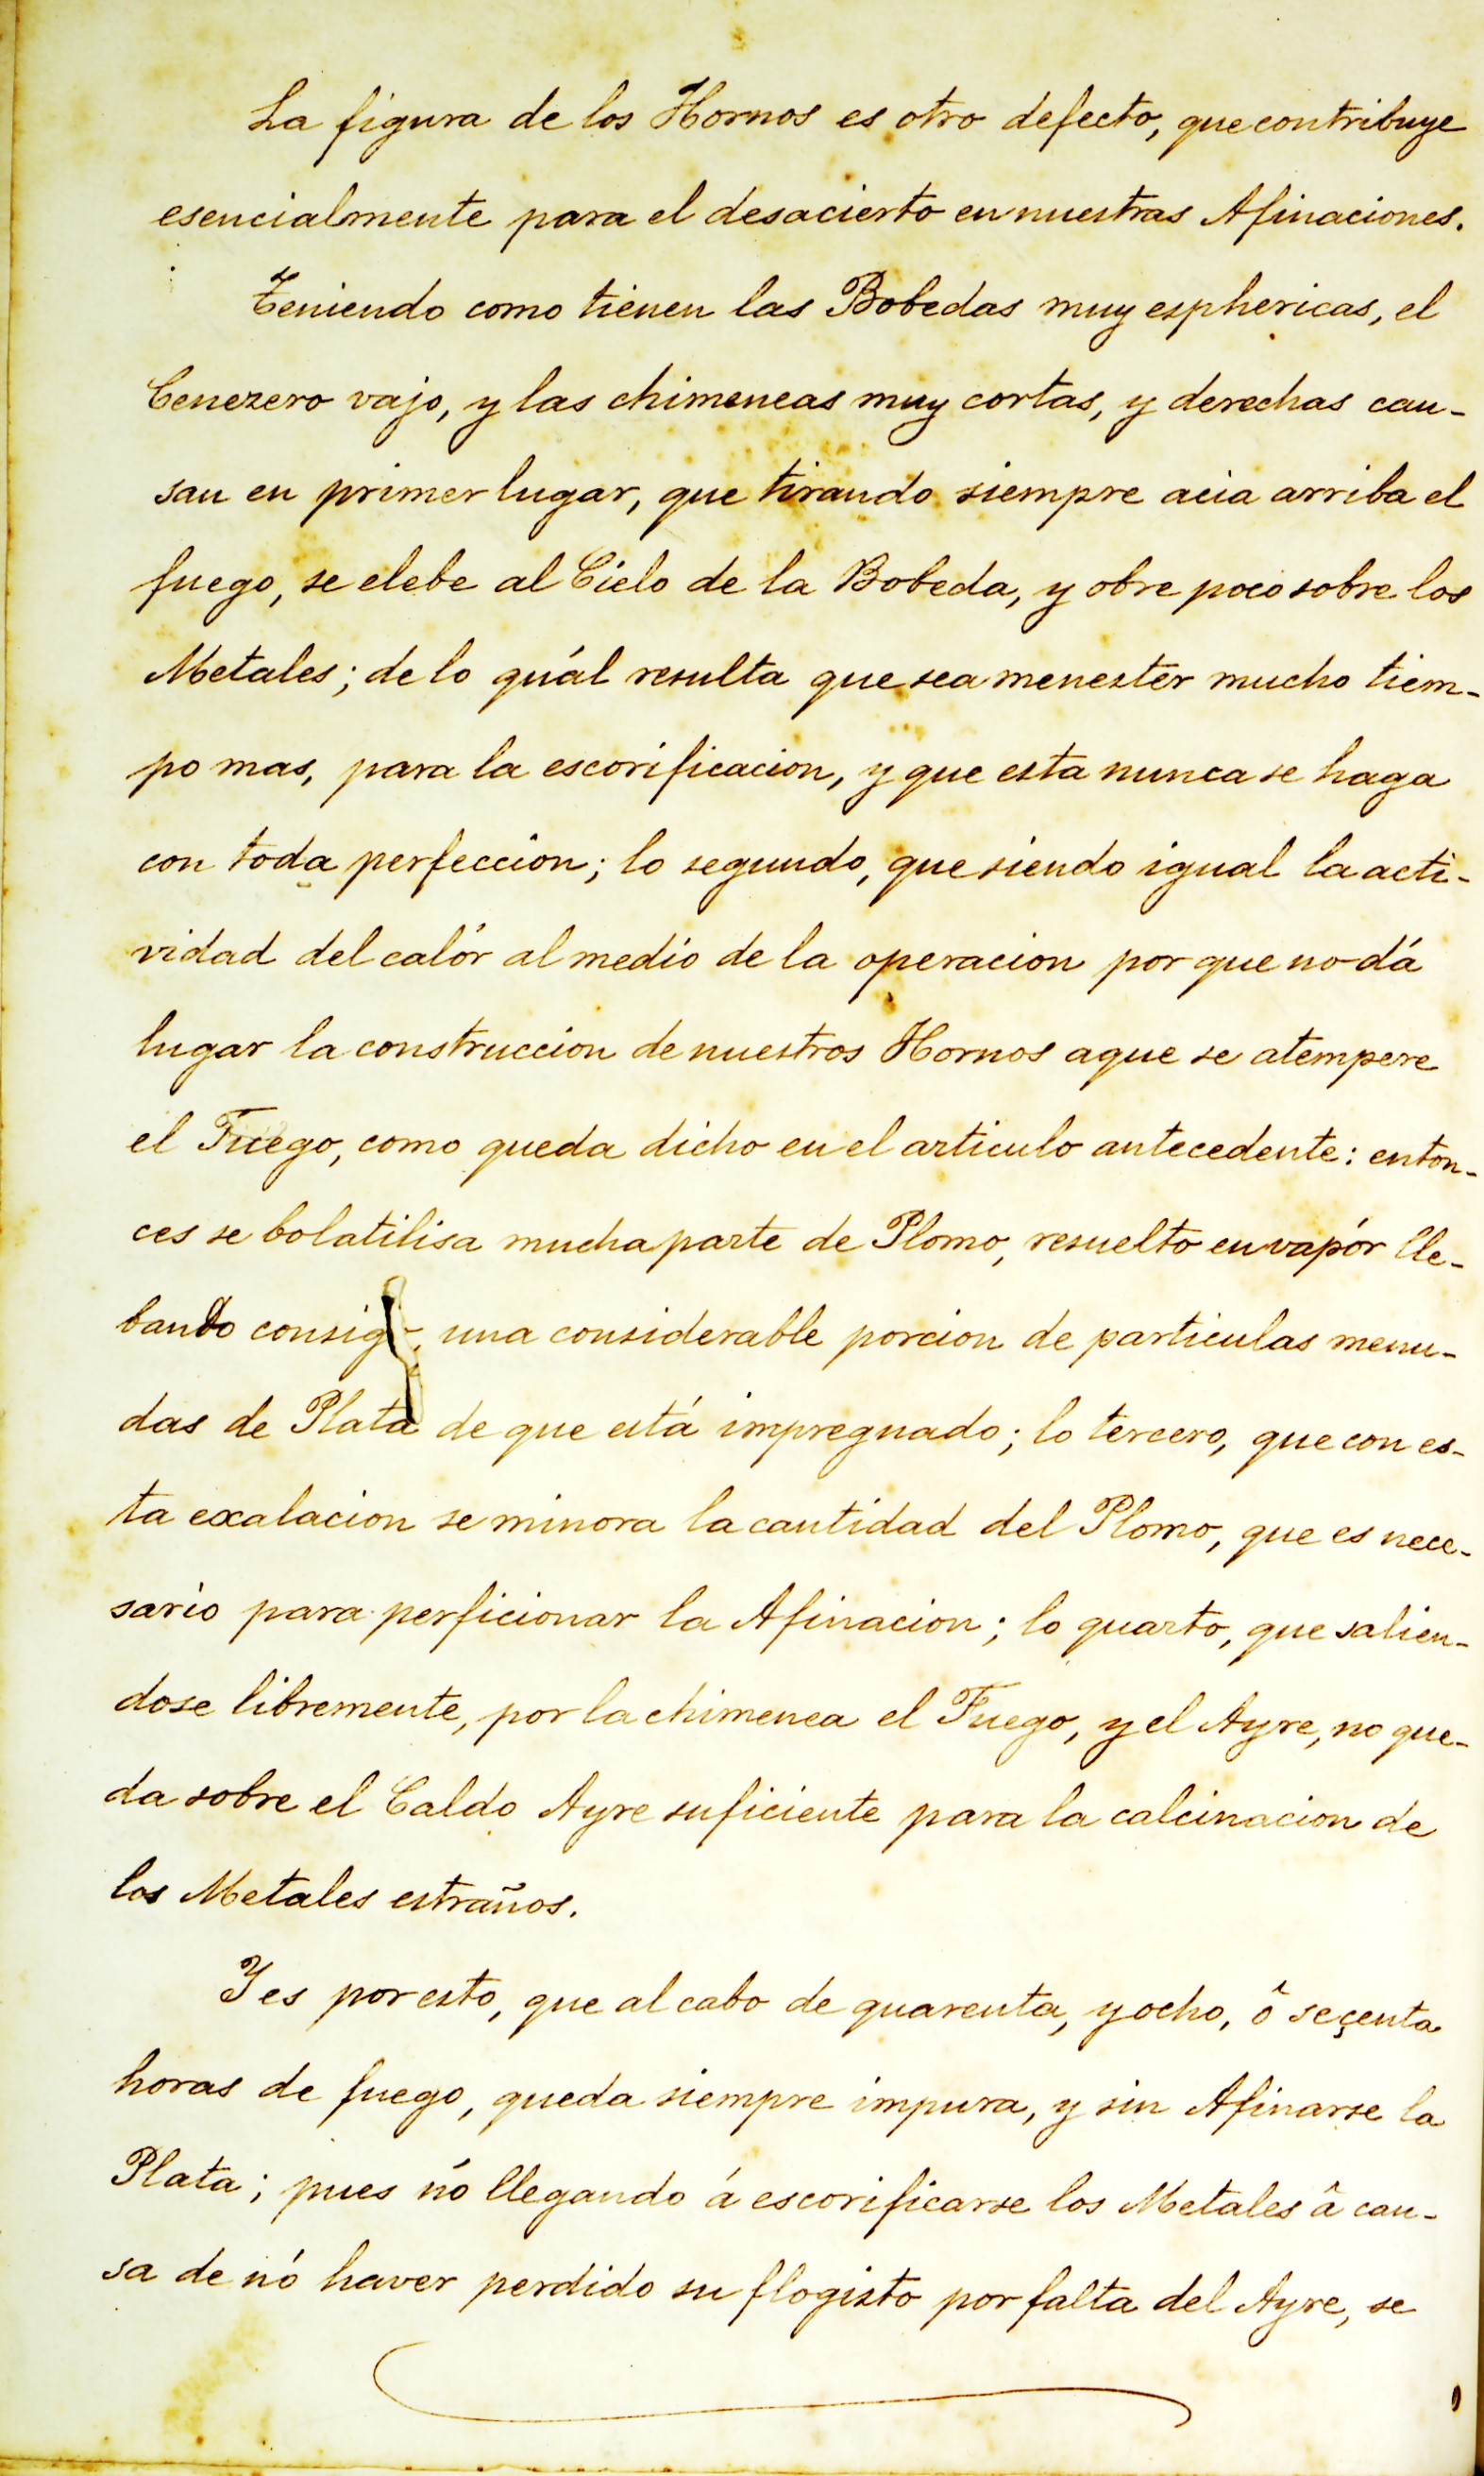 La figura de los Hornos es otro defecto, que contribuye
esencialmente para el desacierto en nuestras Afinaciones.
Teniendo como tienen las Bobedas muy esphericas, el
Cenezero vajo, y las chimeneas muy cortas, y derechas cau-
san en primer lugar, que tirando siempre acia arriba el
fuego, se elebe al Cielo de la Bobeda, y obre poco sobre los
Metales; de lo quál resulta que sea menester mucho tiem-
po mas, para la escorificacion, y que esta nunca se haga
con toda perfeccion; lo segundo, que siendo igual la acti-
vidad del calór al medio de la operacion por que no dá
lugar la construccion de nuestros Hornos aque se atempere
el Fuego, como queda dicho en el articulo antecedente: enton-
ces se bolatilisa mucha parte de Plomo, resuelto en vapór lle-
bando una considerable porcion de particulas menu-
das de Plata de que está impregnado; lo tercero, que con es-
ta exalacion se minora la cantidad del Plomo, que es nece-
sario para perficionar la Afinacion; lo quarto, que salien-
dose libremente, por la chimenea el Fuego, y el Ayre, no que-
da sobre el Caldo Ayre suficiente para la calcinacion de
los Metales estraños.
Y es por esto, que al cabo de quarenta, y ocho, ô seçenta
horas de fuego, queda siempre impura, y sin Afinarse la
Plata; pues nó llegando á escorificarse los Metales â cau-
sa de nó haver perdido su flogisto por falta del Ayre, se